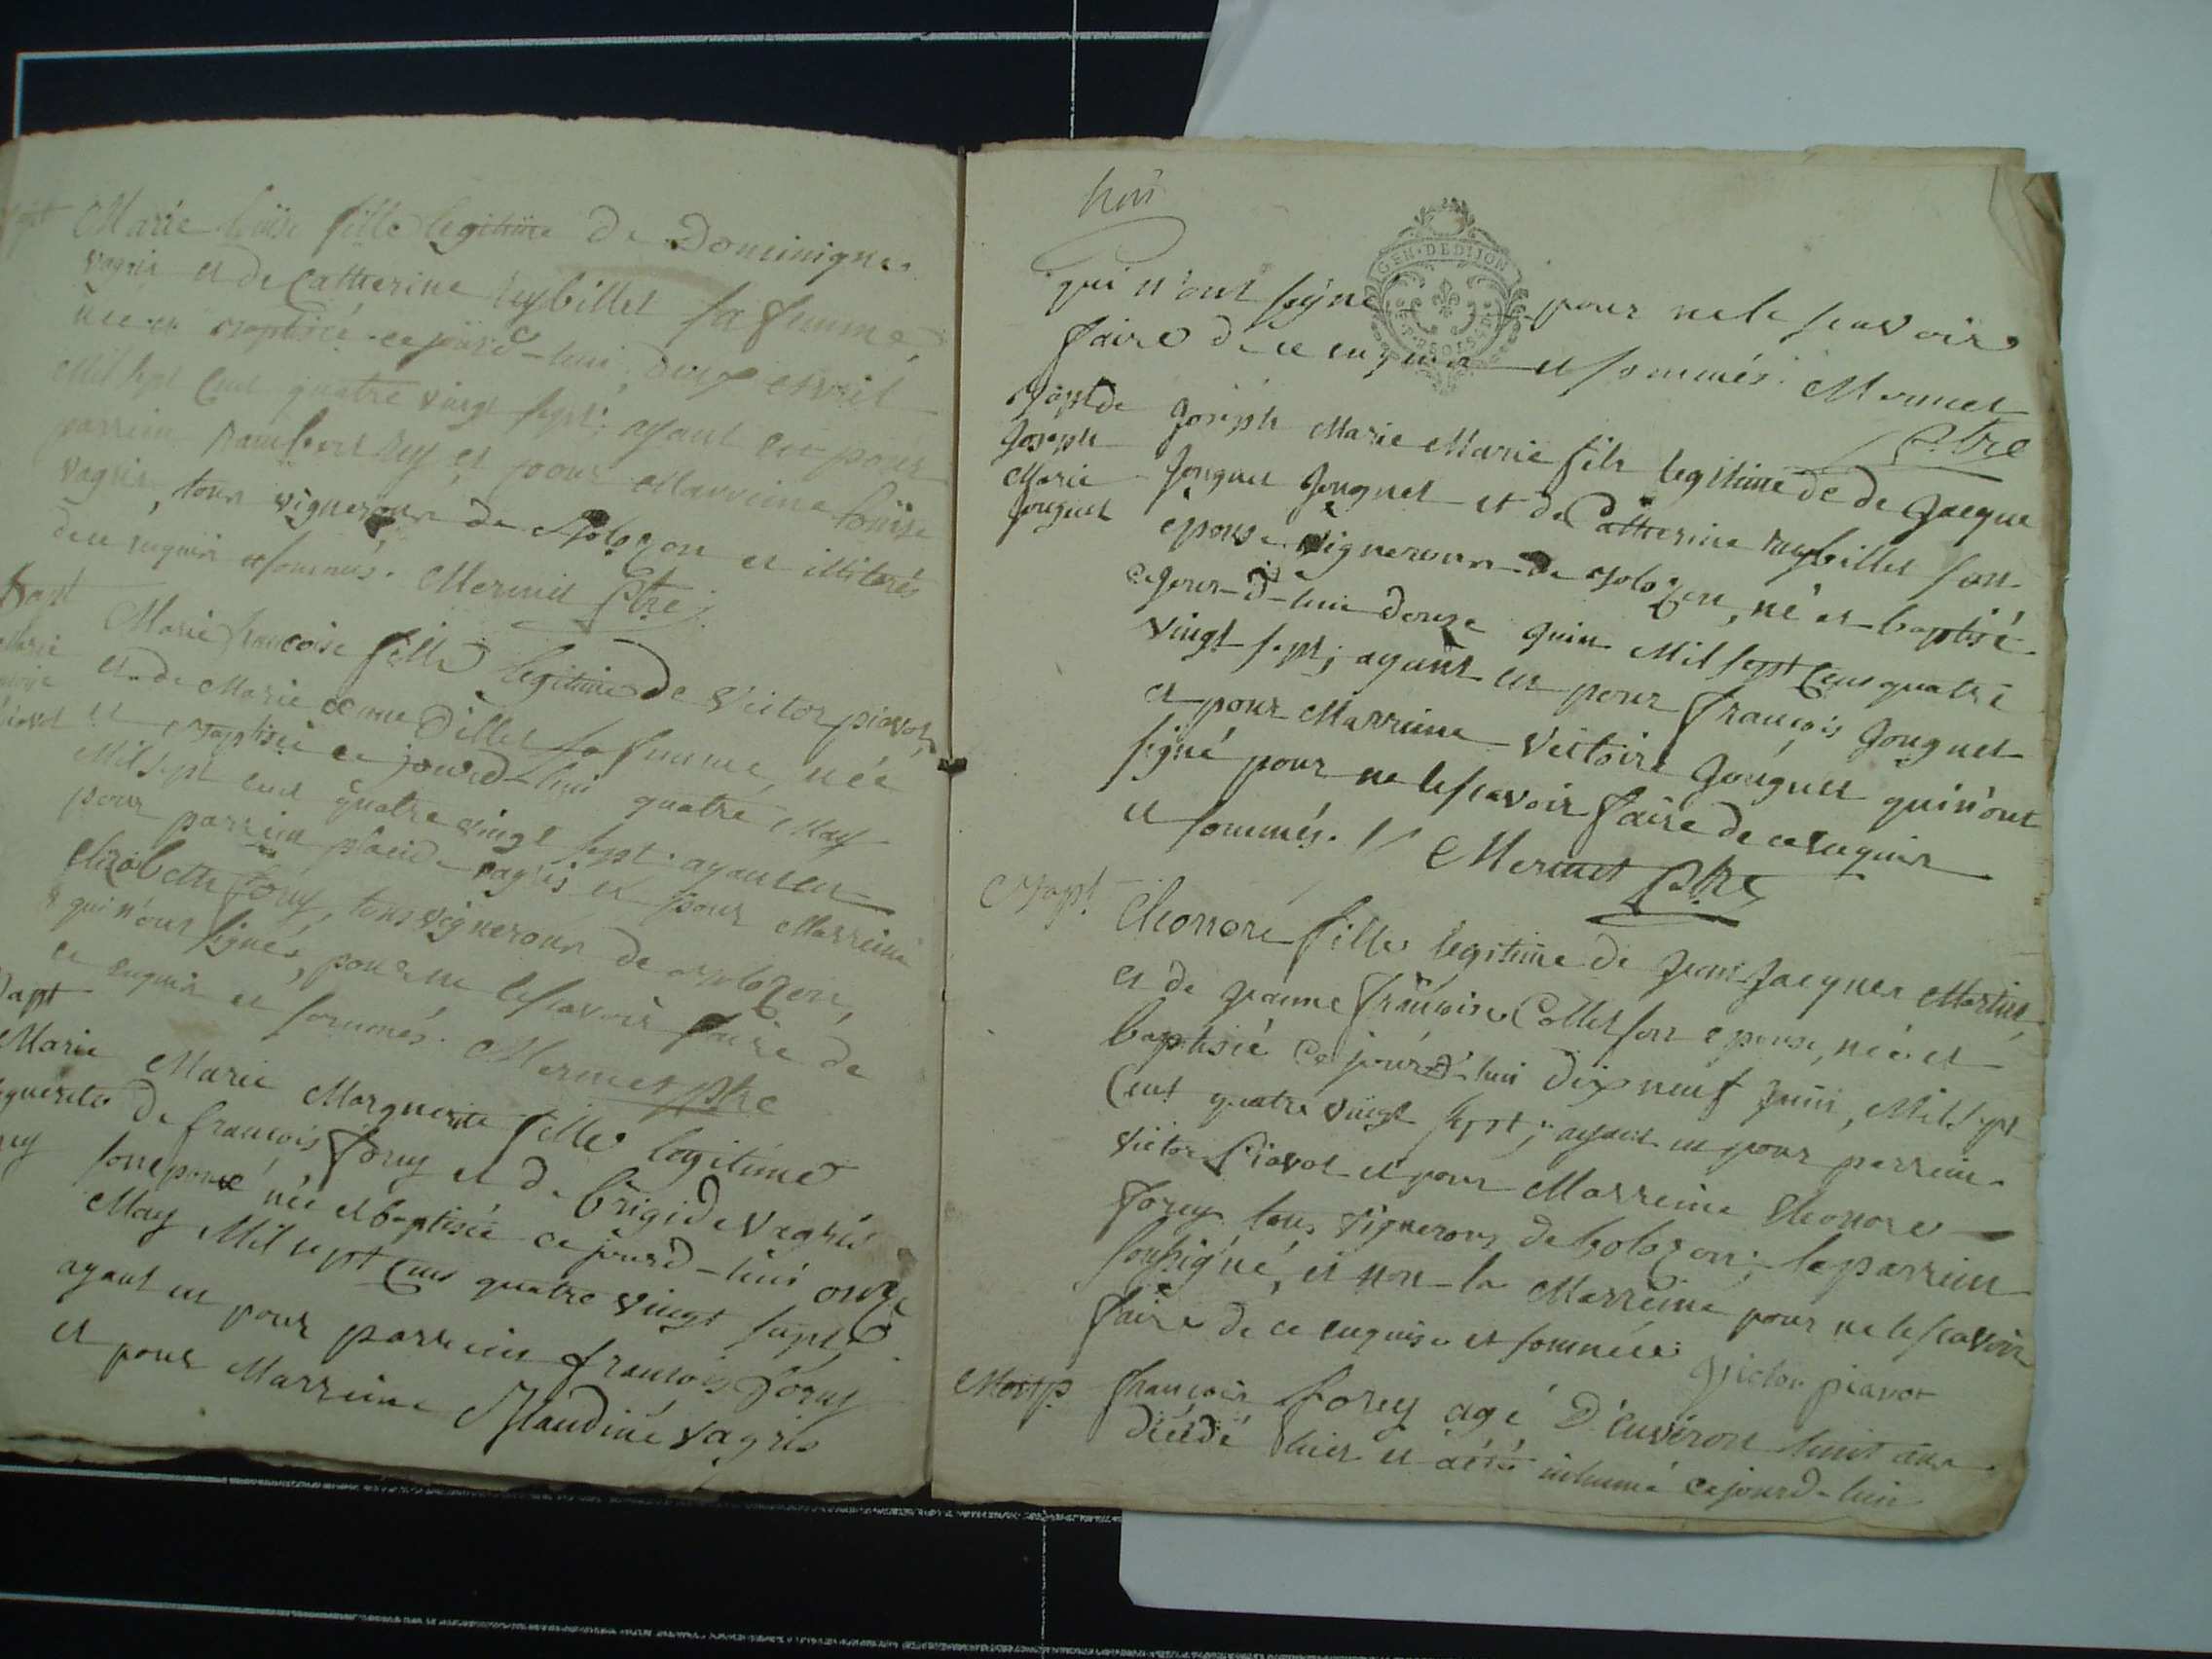 Bapt Marie Loüise fille legitime de Dominique
vagris et de Catherine reybillet sa femme
née et baptisée cejourd-hui deux avril
Mil sept Cent quatre vingt sept; ayant eu pour
parrein rey et pour Marreine Loüise
vagris, tous vignerons de Bolozon et illiterés
de ce enquis et sommés. Mermet Ptre
Bapt
Marie Marie francoise fille legitime de Victor piavot
et de Marie Dillet sa femme, née
piavot et Baptisée ce jourd-hui quatre May
Mil sept cent quatre vingt sept. ayant eu
pour parrein placide vagris et pour Marreine
Elizabette forey, tous vignerons de Bolozon,
& qui n'ont signés, pour ne le scavoir faire de
ce enquis et sommés. Mermet Ptre
Bapt
Marie Marie Marguerite fille legitime
guerite de francois forey et de brigide vagris
rey son epouse née et baptisée ce jourd-hui onze
May Mil sept Cent quatre vingt sept
ayant eu pour parrein francois forey
et pour Marreine Claudine vagris
qui n'ont signé pour ne le scavoir
GEN·DE DIJON
faire de ce enquis et sommés. Mermet
Ptre
Bapt de Joseph Marie Marie fils legitime de de Jacque
Joseph
Marie Jouguet Jouguet et de Catherine reybillet son
Jouguet epouse vignerons de Bolozon, né et baptisé
cejour-d-hui douze juin Mil sept Cent quatre
vingt sept; ayant eu pour François Jouguet
et pour Marreine Victoire Jouguet qui n'ont
signé pour ne le scavoir faire de ce enquis
et sommés. // Mermet Ptre
Bapt. Eleonore fille legitime de Jean Jacques Martin
et de jeanne françoise Collet son epouse, née et
baptisée Ce jourd'hui dix neuf juin, Mil sept
Cent quatre vingt sept; ayant eu pour parrein
victor Piavot et pour Marreine Eleonore
forey tous vignerons de bolozon; le parrein
soussigné, et non la Marreine pour ne le scavoir
faire de ce enquise et sommée.
Victor piavot
françois forey agé D'environ huit ans
décédé hier et a été inhumé cejourd-hui